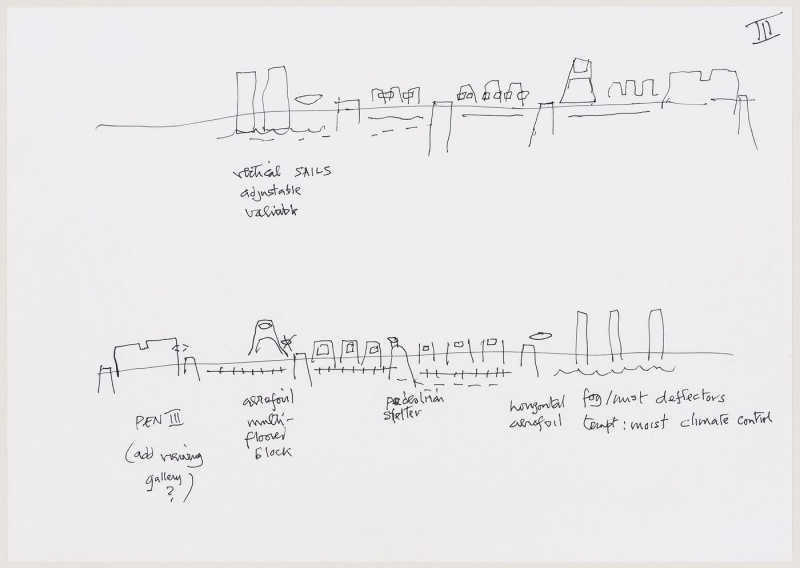 III
vertical SAILS
adjustable
variable
aerofoil
multi-
floored
block
pedestrian
shelter
horizontal
aerofoil
fog/mist deflectors
tempt: moist climate control
PEN III
(add viewing
gallery
?)